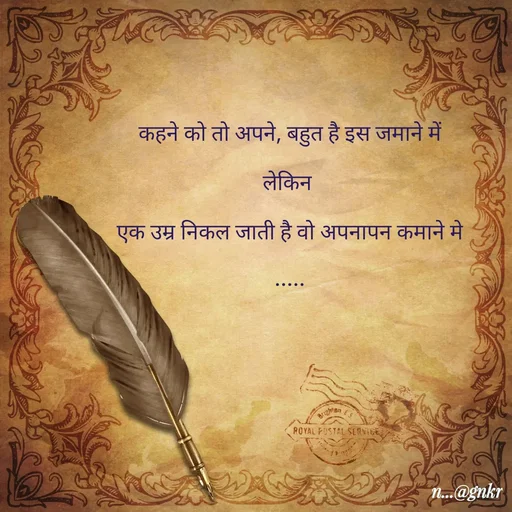 कहने को तो अपने, बहुत है इस जमाने में
लेकिन
एक उम्र निकल जाती है वो अपनापन कमाने मे
.....
ROYAL POSTAL SERVICE
n...@gnkr